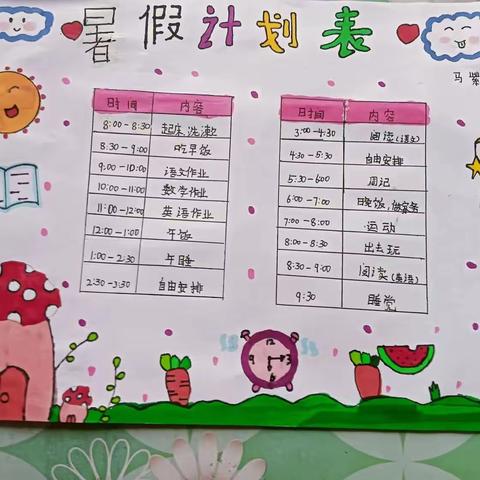 暑假计划表
马紫
时间 内容
8:00-8:30 起床,洗漱
8:30-9:00 吃早饭
9:00-10:00 语文作业
10:00-11:00 数学作业
11:00-12:00 英语作业
12:00-1:00 午饭
1:00-2:30 午睡
2:30-3:30 自由安排
时间 内容
3:00-4:30 阅读(语文)
4:30-5:30 自由安排
5:30-6:00 周记
6:00-7:00 晚饭,做家务
7:00-8:00 运动
8:00-8:30 出去玩
8:30-9:00 阅读(英语)
9:30 睡觉
12
3
6